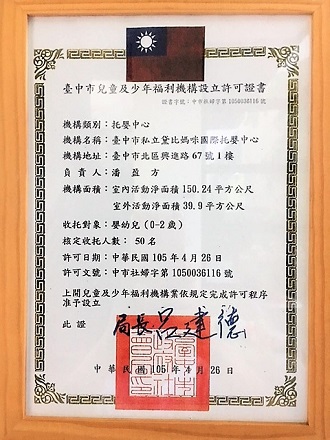 臺中市兒童及少年福利機構設立許可證書
證書字號：中市社婦字第 1050036116 號
機構類別：托嬰中心
機構名稱：臺中市私立黛比媽咪國際托嬰中心
機構地址：臺中市北區興進路67號1樓
負責人：潘盈方
機構面積：室內活動淨面積 150.24 平方公尺
室外活動淨面積 39.9 平方公尺
收托對象：嬰幼兒(0-2歲)
核定收托人數：50名
許可日期：中華民國105年4月26日
許可文號：中市社婦字第1050036116號
上開兒童及少年福利機構業依規定完成許可程序
准予設立
此證
局長呂建德
中華民國105年4月26日